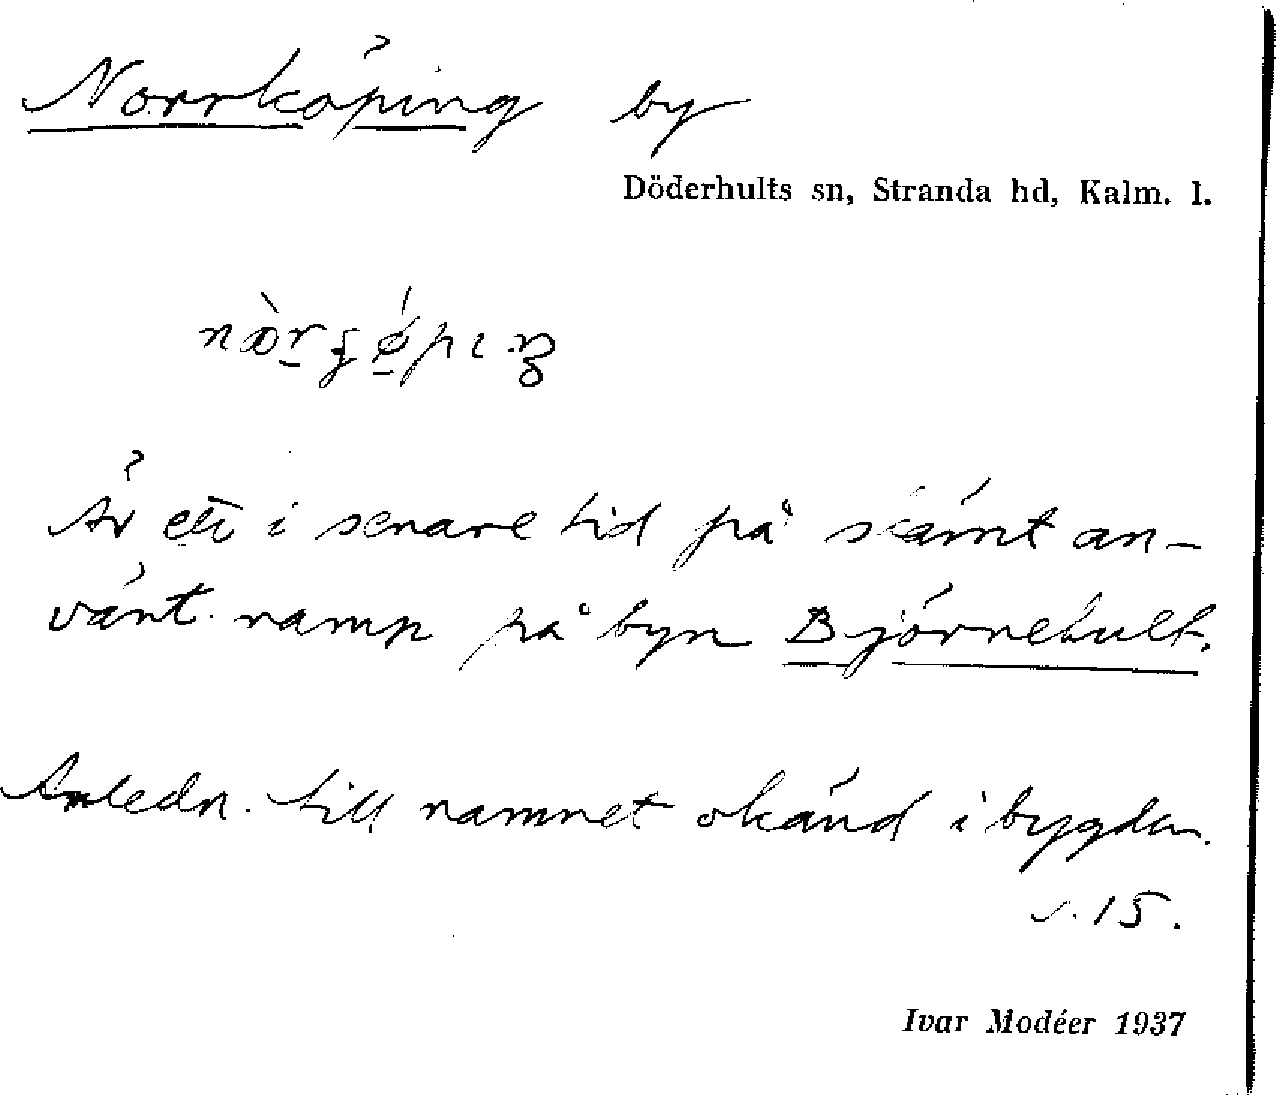 Norrköping by
Döderhults sn, Stranda hd, Kalm. l.
Är ett i senare tid på skämt an-
vänt namn på byn Björnehult.
Anledn. till namnet okänd i bygden.
s. 15.
Ivar Modéer 1937